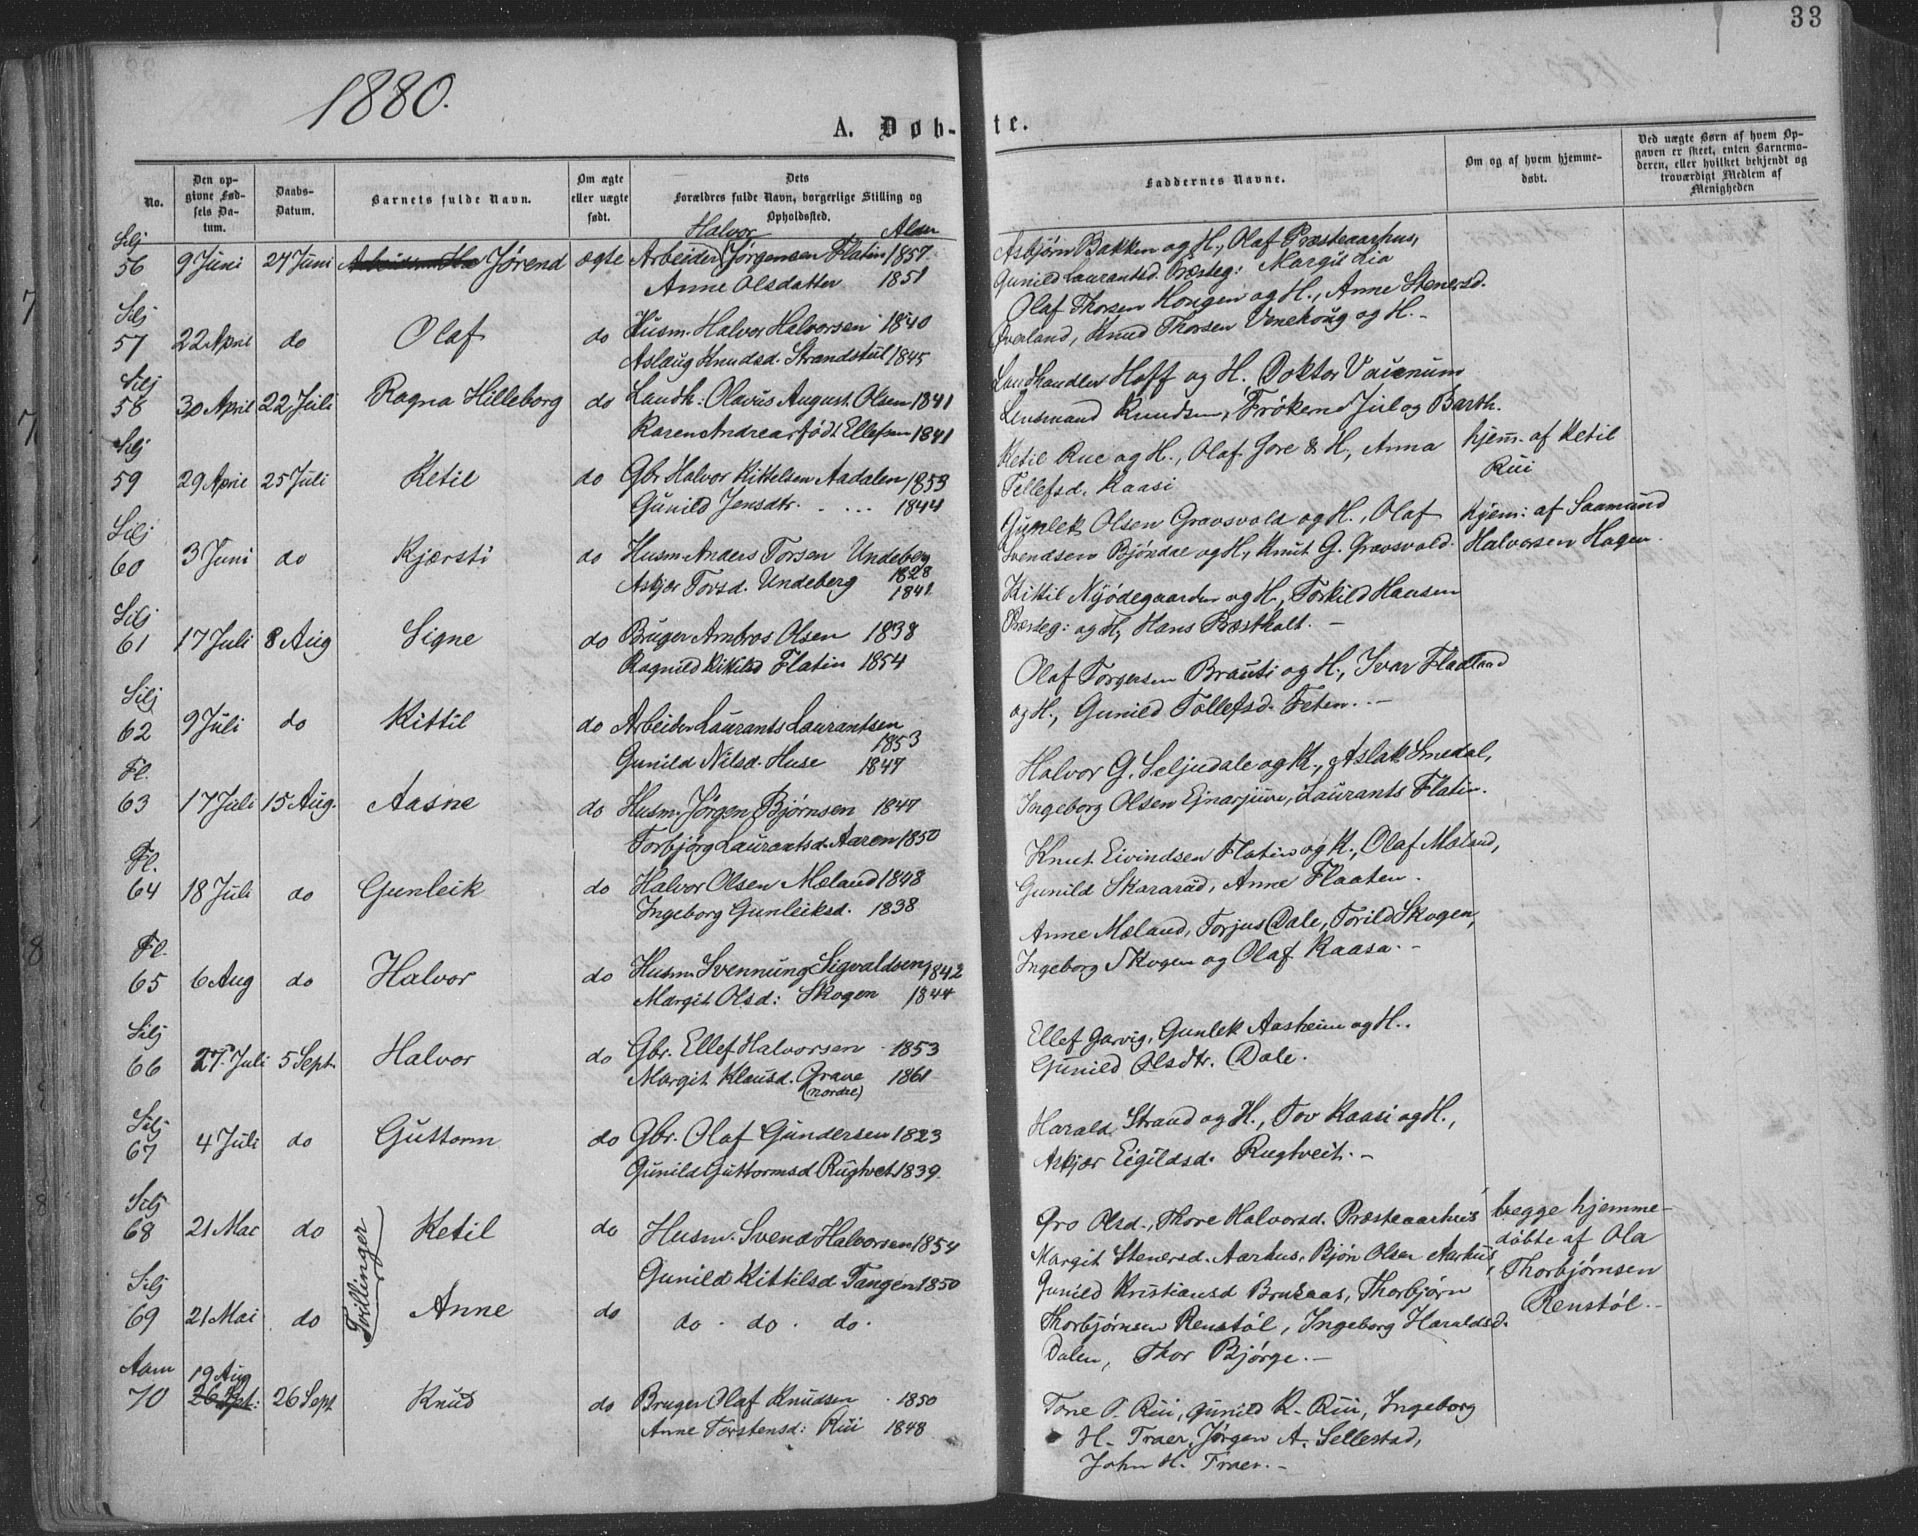 33
1880.
A. Døb-
te.
No.
Den op-
givne Fød-
sels Da-
tum.
Daabs-
Datum.
Barnets fulde Navn.
Om ægte
eller uægte
født.
Dets
Forældres fulde Navn, borgerlige Stilling og
Opholdssted.
Alder
Faddernes Navne.
Om og af hvem hjemme-
døbt.
Ved uægte Børn af hvem Op-
gaven er skeet, enten Barnemo-
deren, eller hvilket bekjendt og
troværdigt Medlem af
Menigheden
Silj
56 9 Juni 24 Juni Jørend ægte Arbeider Halvor Jørgensen Flatin 1857
Anne Olsdatter 1851
Asbjørn Bakken og H., Olaf Præsteaarhus,
Gunild Laurantsd. Præsteg: Margit Lia
Silj
57 22 April do Olaf do Husm. Halvor Halvorsen 1840
Aslaug Knudsd. Strandstul 1845
Olaf Thorsen Kongen og H., Anne Stenersd.
Øverland, Knud Thorsen Venehoug og H. -
Silj
58 30 April 22 Juli Ragna Hilleborg do Landh: Olavus August Olsen 1841
Karen Andrea født Ellefsen 1841
Landhandler Hoff og H. Doktor
Lensmand Knudsen, Frøkerne Jul og Barth.
Silj
59 29 April 25 Juli Ketil do Gbr Halvor Kittelsen Aadalen 1853
Gunild Jensdtr. . ... 1844
Ketil Rue og H., Olaf Gore & H, Anna
Tellefsd. Kaasi
hjem. af Ketil
Rui
Silj
60 3 Juni do Kjærsti do Husm. Anders Torsen Undeberg
1828
Askjer Tovsd. Undeberg 1841
Gunlek Olsen Gravsvold og H., Olaf
Svendsen Bjøndal og H, Knut G. Gravsvold.
hjem: af Saamund
Halvorsen Hagen.
Silj
61 17 Juli 8 Aug Signe do Bruger Ambros Olsen 1838
Ragnild Kittilsd Flatin 1854
Kittil Nyødegaarden og H., Torkild Hansen
Præsteg: og H, Hans Præstholt. -
Silj
62 9 Juli do Kittil do Arbeider Laurants Laurantsen
1853
Gunild Nilsd. Huse 1847
Olaf Torgersen Brauti og H., Ivar Fladland
og H., Gunild Tollefsd. Feten. -
Fl.
63 17 Juli 15 Aug. Aasne do Husm. Jørgen Bjørnsen 1847
Torbjørg Laurantsd. Aaren 1850
Halvor G. Seljudale og K., Aslak Smedal,
Ingeborg Olsen Ejnarjuve, Laurants Flatin.
Fl.
64 18 Juli do Gunleik do Halvor Olsen Mæland 1848
Ingeborg Gunleiksd. 1838
Knut Eivindsen Flatin og K., Olaf Mæland,
Gunild Skararud, Anne Flaaten.
Fl.
65 6 Aug do Halvor do Husm. Svennung Sigvaldsen 1842
Margit Olsd: Skogen 1844
Anne Mæland, Torjus Dale, Torild Skogen,
Ingeborg Skogen og Olaf Kaasa. -
Silj
66 27. Juli 5 Sept. Halvor do Gbr. Ellef Halvorsen 1853
Margit Klausd. Grave 1861
(nordre)
Ellef Garvig, Gunlek Aasheim og H..
Gunild Olsdtr. Dale.
Silj
67 4 Juli do Guttorm do Gbr. Olaf Gundersen 1823
Gunild Guttormsd Rugtvet 1839.
Harald Strand og H., Tov Kaasi og H.,
Askjær Eigildsd. Rugtveit. -
Silj
68 21 Mai do Tvillinger Ketil do Husm. Svend Halvorsen 1854
Gunild Kittilsd. Tangen 1850
Gro Olsd., Thore Halvorsd. Præsteaarhus
Margit Stenersd. Aarhus, Bjøn Olsen Aarhus,
begge hjemme-
døbte af Ola
Thorbjørnsen
Renstøl. -
Silj
69 21 Mai do Anne do do. do. do.
Gunild Kristiansd Brukaas, Thorbjørn
Thorbjørnsen Renstøl, Ingeborg Haraldsd.
Dalen, Thor Bjørge. -
Aam
19 Aug
70 26 Sept: 26 Sept Knud do Bruger Olaf Knudsen 1850
Anne Torstensd: Rui 1848
Tone O. Rui, Gunild K. Rui, Ingeborg
H. Traer, Jørgen A. Sellestad,
John H. Traer. -